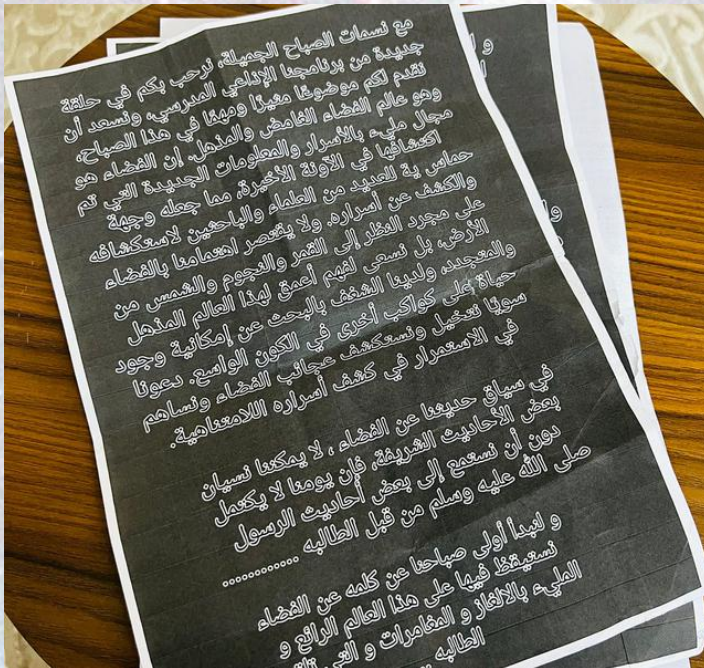 مع نسمات الصباح الجميلة، نرحب بكم في حلقة
جديدة من برنامجنا الإذاعي المدرسي، ونسعد أن
نقدم لكم موضوعًا مثيرًا ومهمًا في هذا الصباح،
وهو عالم الفضاء الغامض والمذهل. إن الفضاء هو
مجال مليء بالأسرار والمعلومات الجديدة التي تم
اكتشافها في الآونة الأخيرة، مما جعله وجهة
حماس ية للعديد من العلماء والباحثين لاستكشافه
والكشف عن أسراره. ولا يقتصر اهتمامنا بالفضاء
على مجرد النظر إلى القمر والنجوم والشمس من
الأرض، بل نسعى لفهم أعمق لهذا العالم المذهل
والمتجدد، ولدينا الشغف بالبحث عن إمكانية وجود
حياة على كواكب أخرى في الكون الواسع. دعونا
سويًا نتخيل ونستكشف عجائب الفضاء ونساهم
في الاستمرار في كشف أسراره اللامتناهية.
في سياق حديثنا عن الفضاء ، لا يمكننا نسيان
بعض الأحاديث الشريفة، فإن يومنا لا يكتمل
دون أن نستمع إلى بعض أحاديث الرسول
صلى الله عليه وسلم من قبل الطالبه ............
و لنبدأ أولى صباحنا عن كلمه عن الفضاء
نستيقظ فيها على هذا العالم الرائع و
المليء بالالغاز و المغامرات و التي
الطالبه